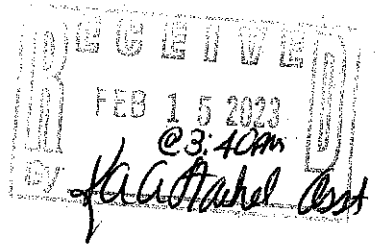 RECEIVED
FEB 15 2023
@3:40am
By
Asst